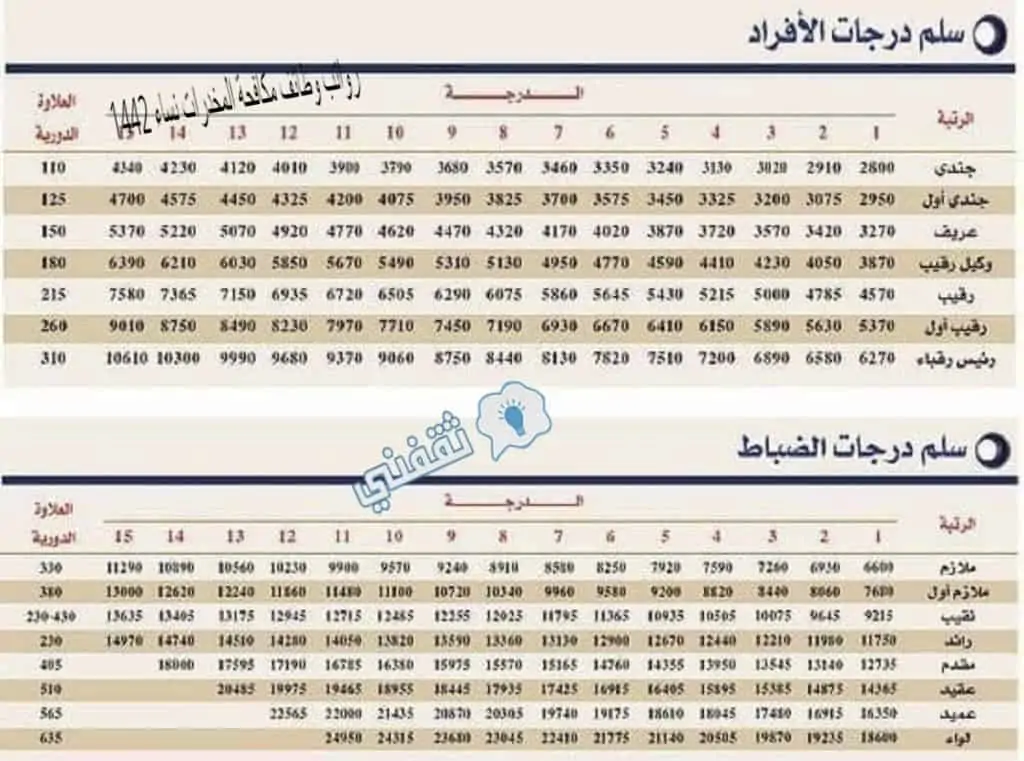 سلم درجات الأفراد
رواتب وظائف مكافحة المخدرات نساء 1442
الرتبة الـــدرجـــة العلاوة الدورية
1 2 3 4 5 6 7 8 9 10 11 12 13 14 15
جندى 2800 2910 3020 3130 3240 3350 3460 3570 3680 3790 3900 4010 4120 4230 4340 110
جندى أول 2950 3075 3200 3325 3450 3575 3700 3825 3950 4075 4200 4325 4450 4575 4700 125
عريف 3270 3420 3570 3720 3870 4020 4170 4320 4470 4620 4770 4920 5070 5220 5370 150
وكيل رقيب 3870 4050 4230 4410 4590 4770 4950 5130 5310 5490 5670 5850 6030 6210 6390 180
رقيب 4570 4785 5000 5215 5430 5645 5860 6075 6290 6505 6720 6935 7150 7365 7580 215
رقيب أول 5370 5630 5890 6150 6410 6670 6930 7190 7450 7710 7970 8230 8490 8750 9010 260
رئيس رقباء 6270 6580 6890 7200 7510 7820 8130 8440 8750 9060 9370 9680 9990 10300 10610 310
ثقفني
سلم درجات الضباط
الرتبة الـــدرجـــة العلاوة الدورية
1 2 3 4 5 6 7 8 9 10 11 12 13 14 15
ملازم 6600 6930 7260 7590 7920 8250 8580 8910 9240 9570 9900 10230 10560 10890 11290 330
ملازم أول 7680 8060 8440 8820 9200 9580 9960 10340 10720 11100 11480 11860 12240 12620 13000 380
نقيب 9215 9645 10075 10505 10935 11365 11795 12025 12255 12485 12715 12945 13175 13405 13635 230-430
رائد 11750 11980 12210 12440 12670 12900 13130 13360 13590 13820 14050 14280 14510 14740 14970 230
مقدم 12735 13140 13545 13950 14355 14760 15165 15570 15975 16380 16785 17190 17595 18000 405
عقيد 14365 14875 15385 15895 16405 16915 17425 17935 18445 18955 19465 19975 20485 510
عميد 16350 16915 17480 18045 18610 19175 19740 20305 20870 21435 22000 22565 565
لواء 18600 19235 19870 20505 21140 21775 22410 23045 23680 24315 24950 635